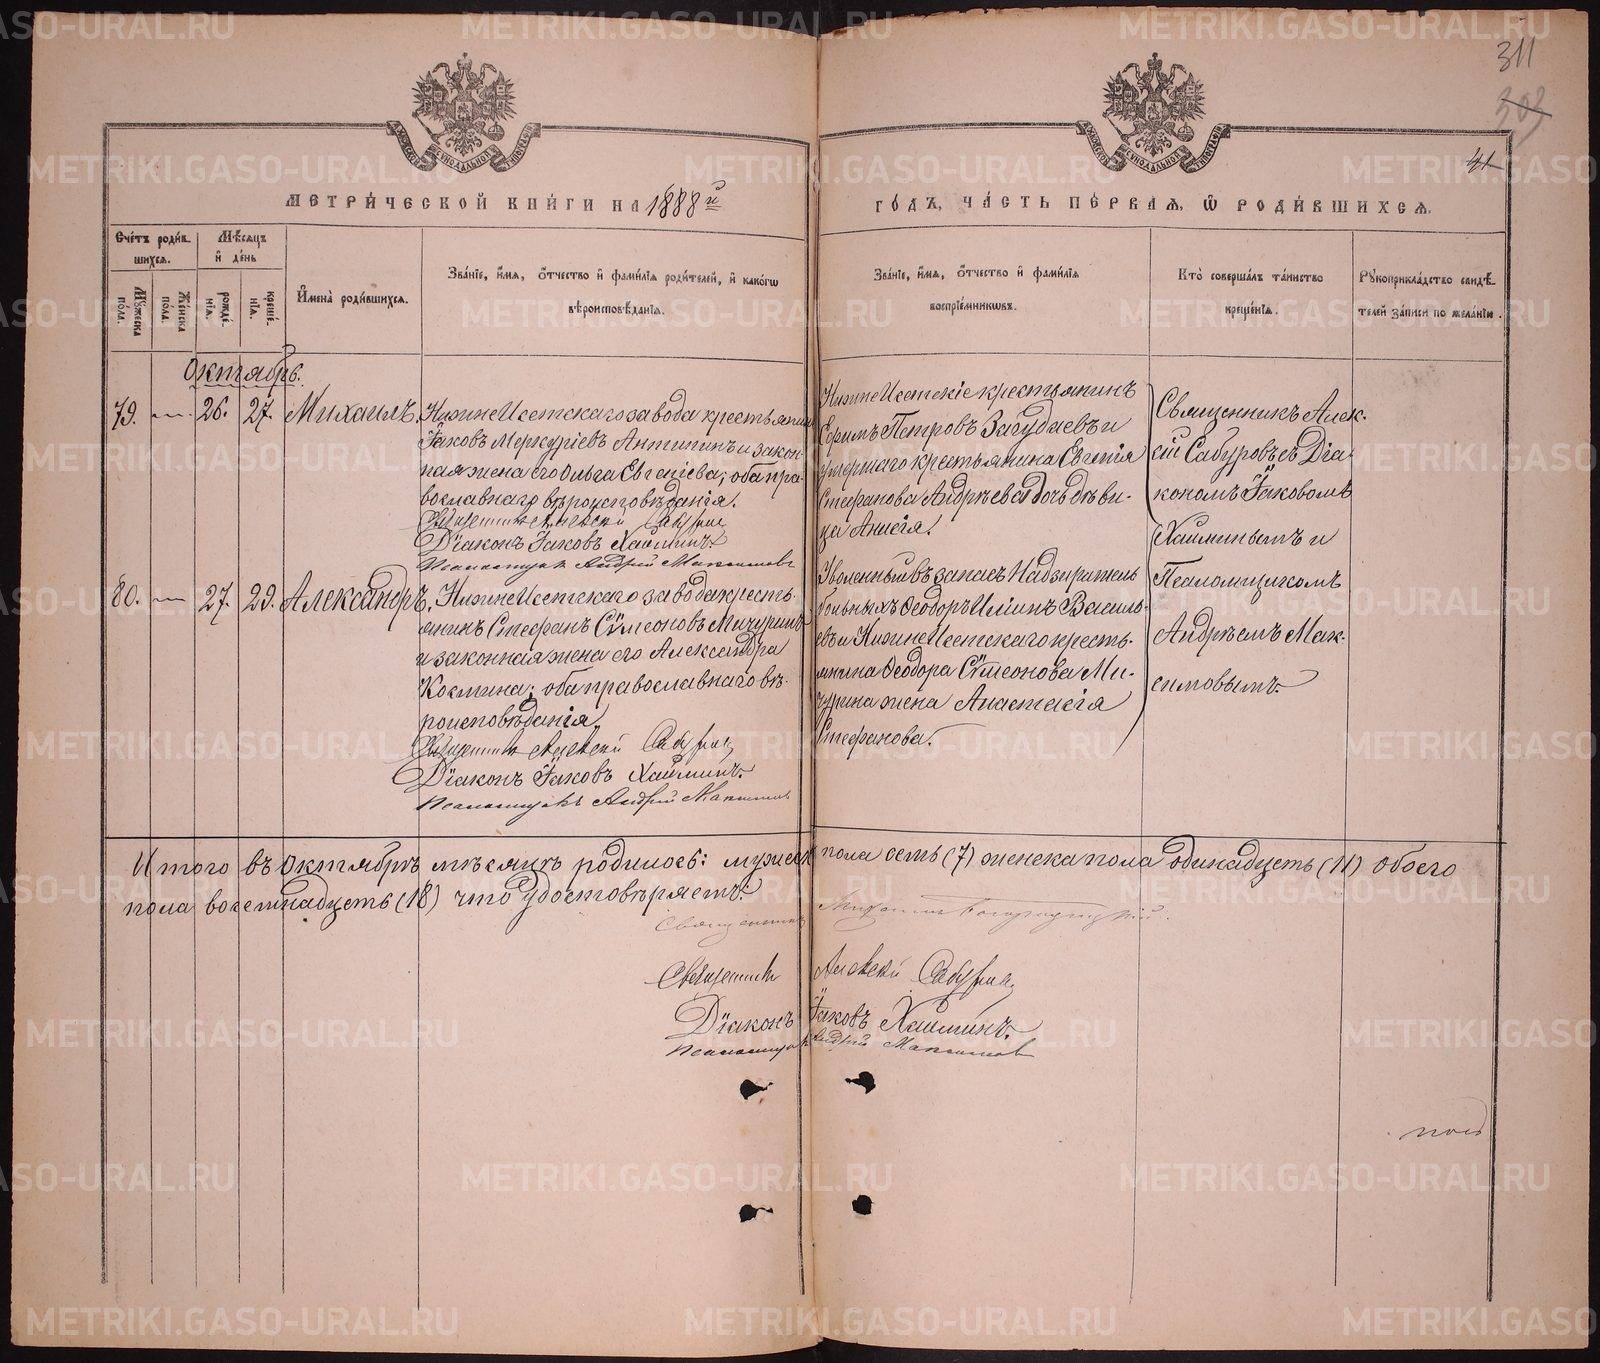 311
303
41
МЕТРИ́ЧЕСКОЙ КНИ́ГИ НА 1888й
ГО́ДЪ, ЧА́СТЬ ПЕ́РВАЯ, Ѡ РОДИ́ВШИХСЯ.
Сче́тъ роди́в-
шихся.
Му́жеска по́ла.
Же́нска по́ла.
Мѣ́сяцъ и де́нь
рожде́-
нія.
креще́-
нія.
Имена̀ роди́вшихся.
Зва́ніе, и́мя, о́тчество и фами́лія роди́телей, и како́гѡ
вѣроисповѣ́данія.
Зва́ніе, и́мя, о́тчество и фами́лія
воспріе́мниковъ.
Кто̀ соверша́лъ та́инство
креще́нія.
Рукоприкла́дство свидѣ́-
телей за́писи по жела́нію.
Октябрь.
79. — 26. 27. Михаилъ.
НижнеИсетскаго завода крестьянинъ
Іаковъ Меркуріевъ Антипинъ и закон-
ная жена его Ольга Евгеніева; оба пра-
вославнаго вѣроисповѣданія.
Священникъ Алексій Сабуровъ
Діаконъ Іаковъ Хайминъ.
Псаломщикъ Андрей Максимовъ
НижнеИсетскіе крестьянинъ
Ефримъ Петровъ Загудаевъ и
умершаго крестьянина Евгенія
Стефанова Андреева дочь дѣви-
ца Анисія.
Священникъ Алек-
сій Сабуровъ съ Діа-
кономъ Іаковомъ
Хайминымъ и
Псаломщикомъ
Андреемъ Мак-
симовымъ.
80. — 27. 29. Александръ.
НижнеИсетскаго завода кресть-
янинъ Стефанъ Сѵмеоновъ Мичуринъ
и законная жена его Александра
Космина; оба православнаго вѣ-
роисповѣданія.
Священникъ Алексій Сабуровъ
Діаконъ Іаковъ Хайминъ.
Псаломщикъ Андрей Максимовъ
Уволенный въ запасъ Надзиратель
больныхъ Ѳеодоръ Илiинъ Василь-
евъ и НижнеИсетскаго кресть-
янина Ѳеодора Сѵмеонова Ми-
чурина жена Анастасія
Стефанова.
Итого въ Октябрѣ мѣсяцѣ родилось: мужеск пола семь (7) женска пола одинадцеть (11) обоего
пола восемнадцеть (18) что удостовѣряетъ:
Священникъ Михаилъ
Священникъ Алексій Сабуровъ
Діаконъ Іаковъ Хайминъ.
Псаломщикъ Андрей Максимовъ
METRIKI.GASO-URAL.RU